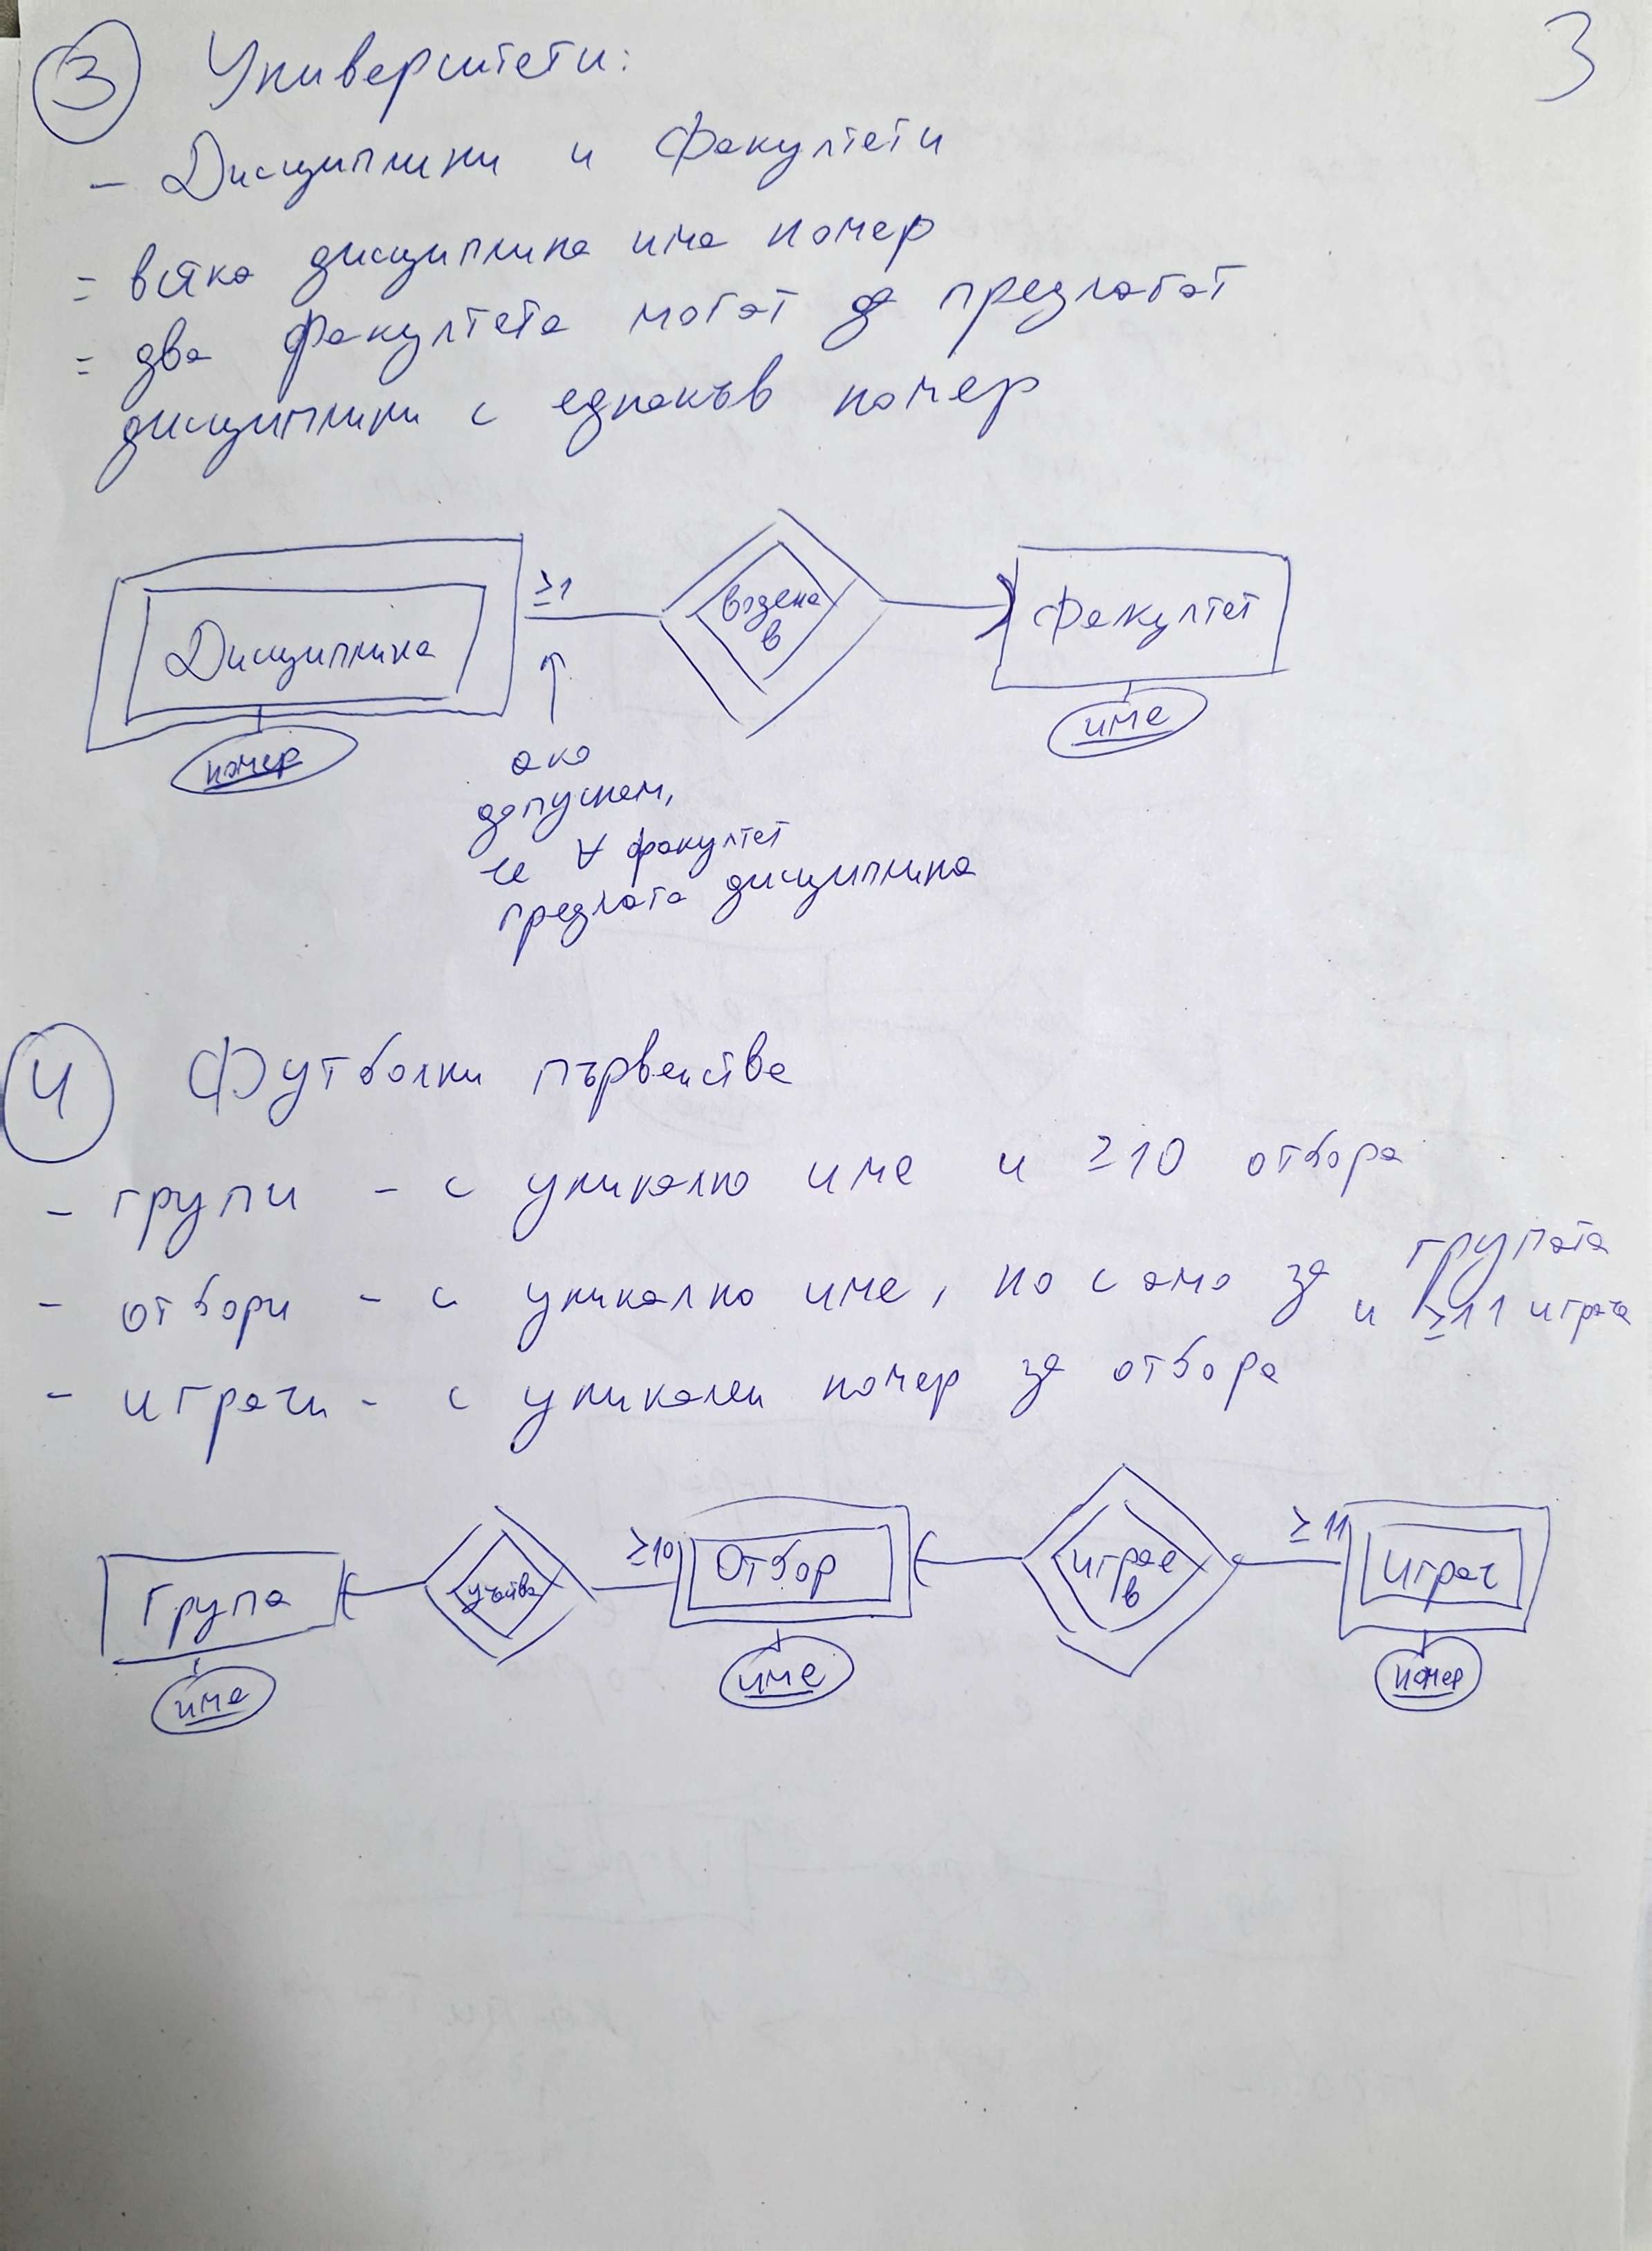 3
③ Университети:
- Дисциплини и Факултети
= всяка дисциплина има номер
= два факултета могат да предлагат
дисциплини с еднакъв номер
Дисциплина
≥1
водена
в
Факултет
номер
име
ако
допуснем,
че ∀ факултет
предлага дисциплина
④ Футболни първенства
- групи - с уникално име и ≥10 отбора
- отбори - с уникално име, но само за групата
и ≥11 играча
- играчи - с уникален номер за отбора
Група
участва
≥10
Отбор
играе
в
≥11
Играч
име
име
номер